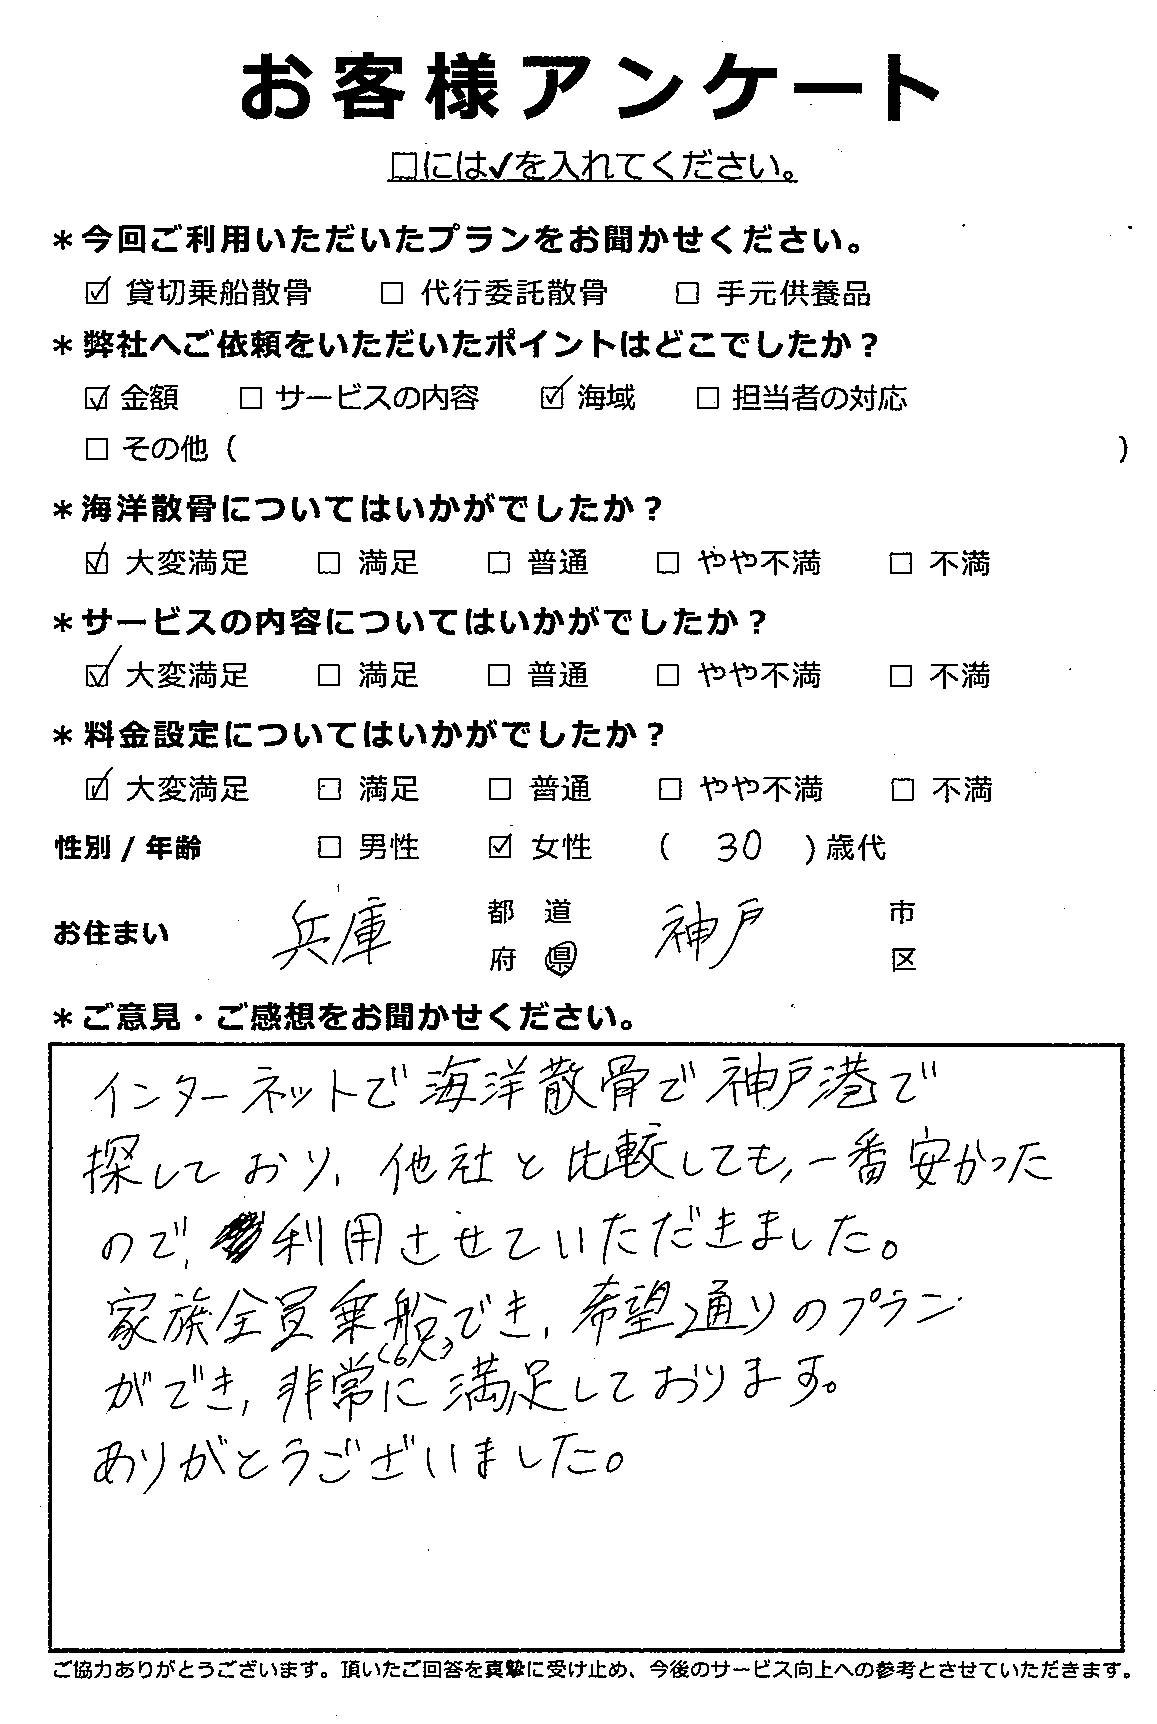 お客様アンケート
□には✓を入れてください。
＊今回ご利用いただいたプランをお聞かせください。
☑ 貸切乗船散骨　□ 代行委託散骨　□ 手元供養品
＊弊社へご依頼をいただいたポイントはどこでしたか？
☑ 金額　□ サービスの内容　☑ 海域　□ 担当者の対応
□ その他（　　　）
＊海洋散骨についてはいかがでしたか？
☑ 大変満足　□ 満足　□ 普通　□ やや不満　□ 不満
＊サービスの内容についてはいかがでしたか？
☑ 大変満足　□ 満足　□ 普通　□ やや不満　□ 不満
＊料金設定についてはいかがでしたか？
☑ 大変満足　□ 満足　□ 普通　□ やや不満　□ 不満
性別 / 年齢　□ 男性　☑ 女性　（ 30 ）歳代
お住まい　兵庫　都 道 府 県　神戸　市 区
＊ご意見・ご感想をお聞かせください。
インターネットで海洋散骨で神戸港で
探しており、他社と比較しても、一番安かった
ので、利用させていただきました。
家族全員乗船でき、希望通りのプラン
(6人)
ができ、非常に満足しております。
ありがとうございました。
ご協力ありがとうございます。頂いたご回答を真摯に受け止め、今後のサービス向上への参考とさせていただきます。